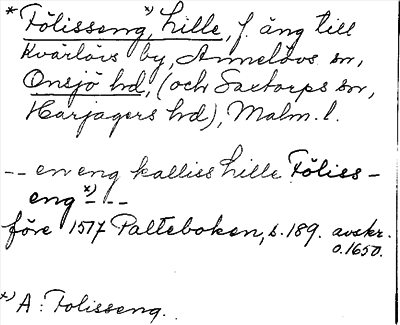 * Fölisseng, ˣ⁾ Lille, f. äng till
Kvärlövs by, Annelövs sn,
Onsjö hd, (och Saxtorps sn,
Harjagers hd), Malm. l.
-- en eng kalliss Lille Föliss-
eng ˣ⁾ - --
före 1517 Palteboken, s. 189. avskr.
o. 1650.
ˣ⁾ A: Folisseng.